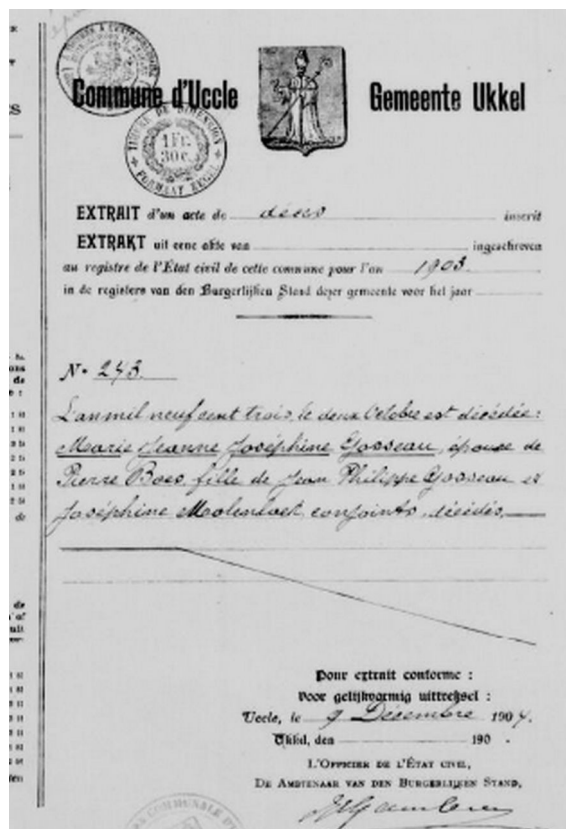 Commune d'Uccle Gemeente Ukkel
TIMBRE DE DIMENSION
1 Fr.
30 c.
FORMAAT ZEGEL
EXTRAIT d'un acte de décès inscrit
EXTRAKT uit eene akte van ingeschreven
au registre de l'État civil de cette commune pour l'an 1903.
in de registers van den Burgerlijken Stand dezer gemeente voor het jaar
No 243.
L'an mil neuf cent trois, le deux Octobre est décédée:
Marie Jeanne Joséphine Gosseau, épouse de
Pierre Boes, fille de Jean Philippe Gosseau et
Joséphine conjoints, décédés,
Pour extrait conforme :
Voor gelijkvormig uittreksel :
Uccle, le 9 Décembre 1904.
Ukkel, den 190 .
L'OFFICIER DE L'ÉTAT CIVIL,
DE AMBTENAAR VAN DEN BURGERLIJKEN STAND,